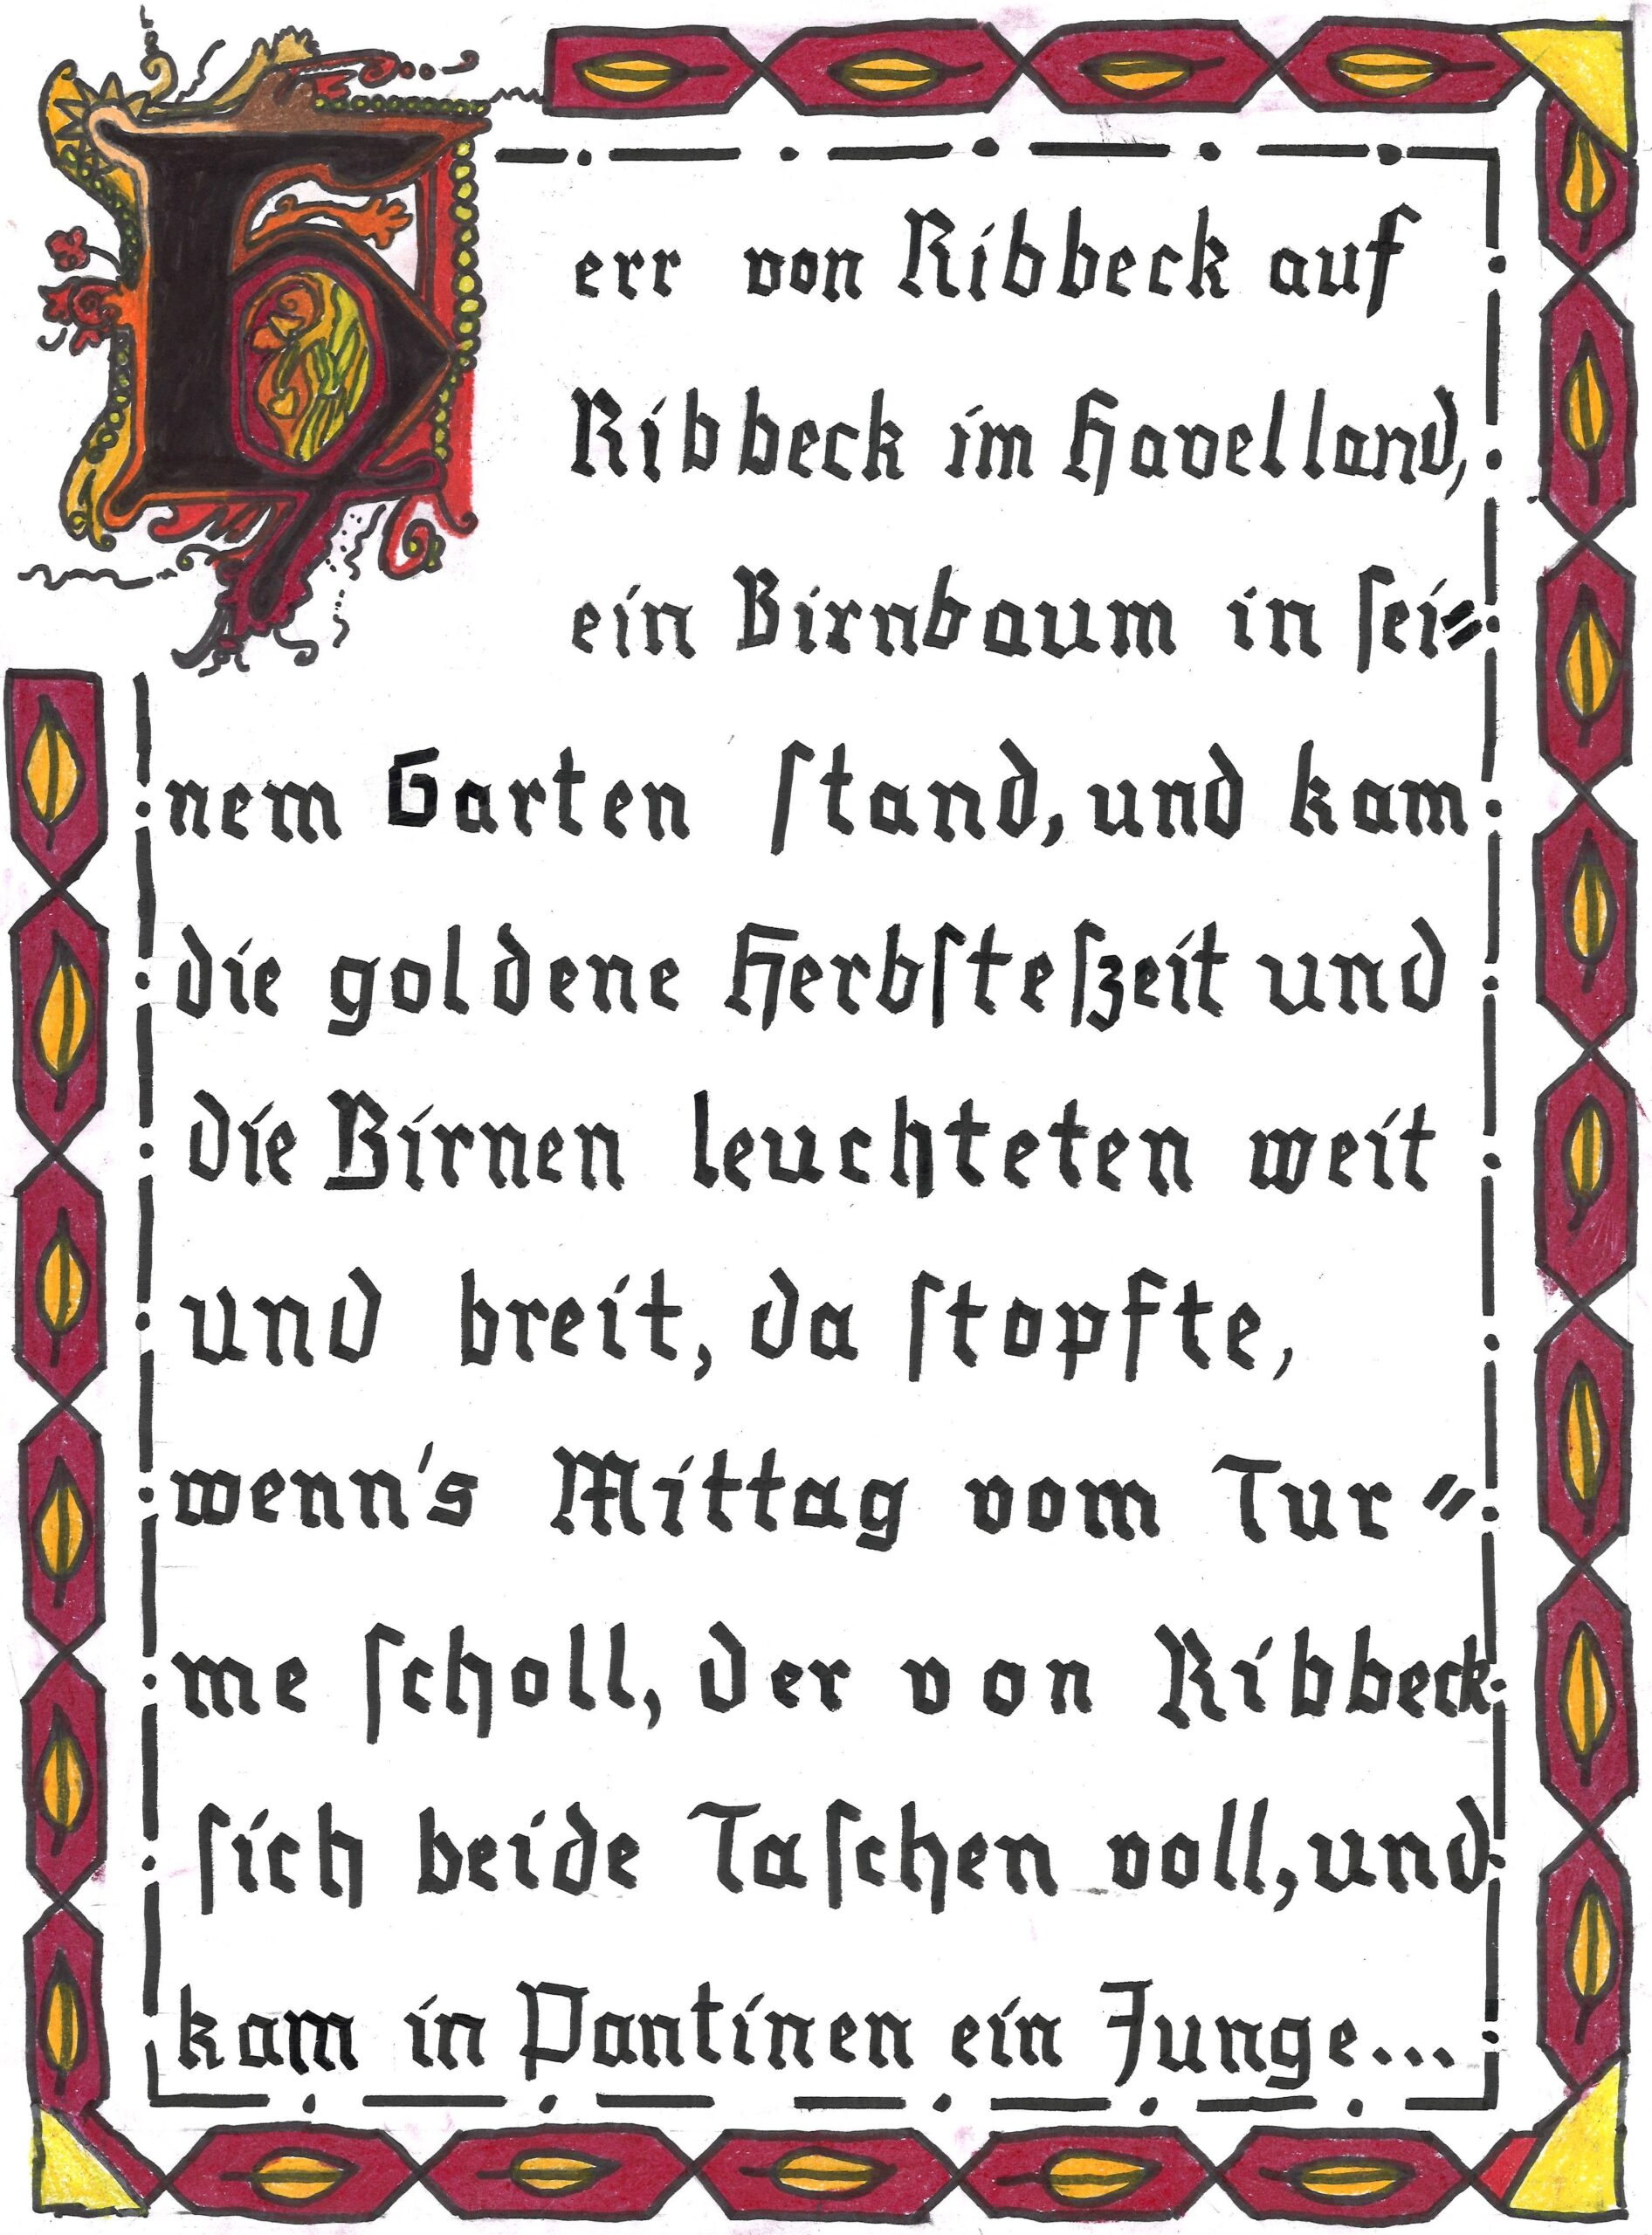 Herr von Ribbeck auf
Ribbeck im Havelland,
ein Birnbaum in ſei⸗
nem Garten ſtand, und kam
die goldene Herbſteſzeit und
die Birnen leuchteten weit
und breit, da ſtopfte,
wenn's Mittag vom Tur⸗
me ſcholl, der von Ribbeck
ſich beide Taſchen voll, und
kam in Pantinen ein Junge...